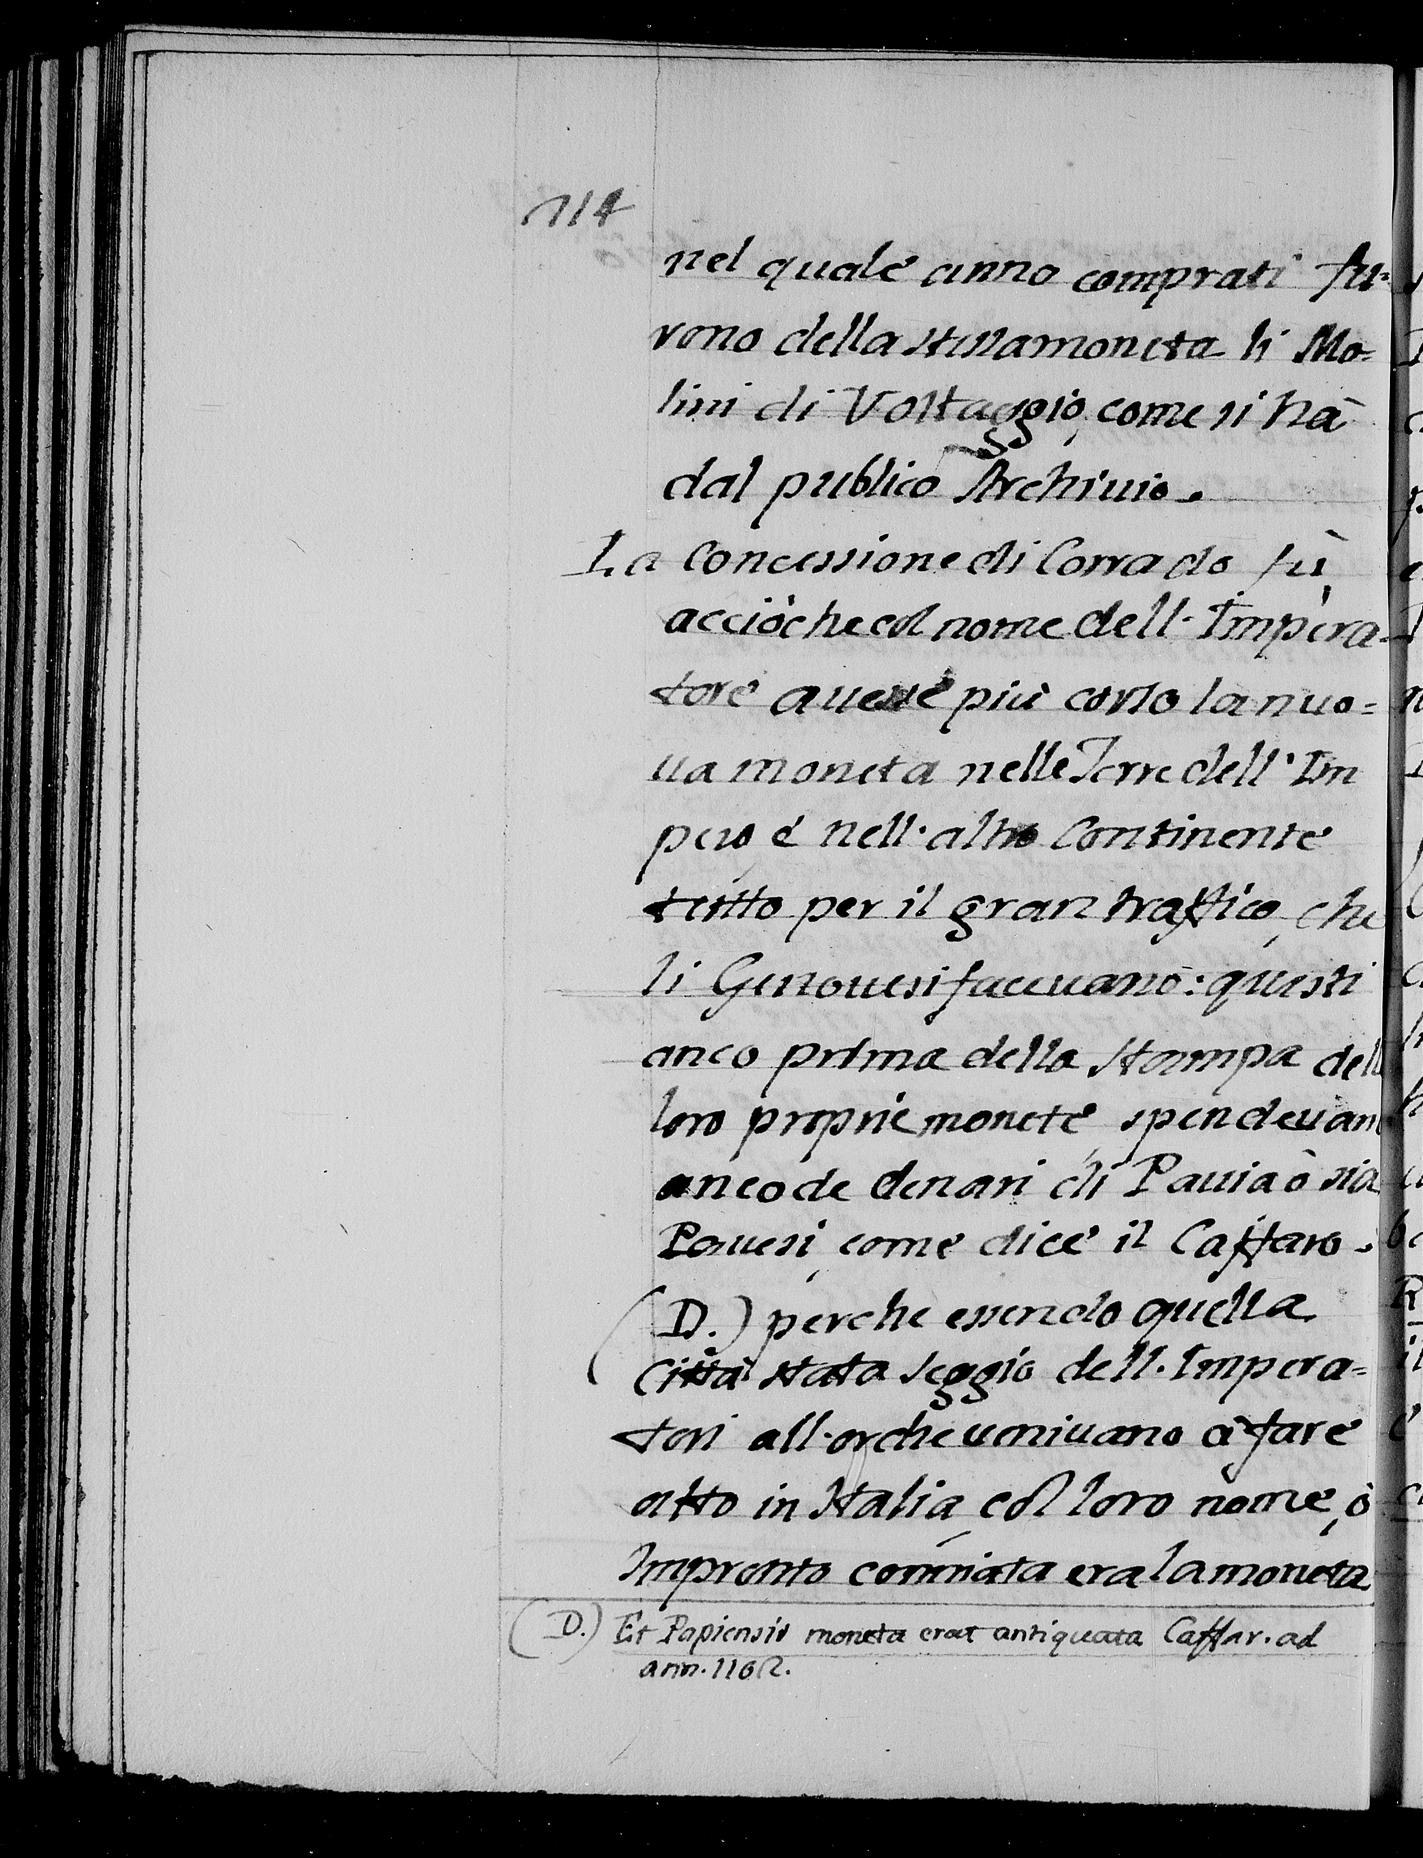 114
nel quale anno comprati fu=
rono della stessa moneta li Mo=
lini di Voltaggio, come si hà
dal publico Archiuio.
La Concessione di Corrado fù,
acciòche col nome dell'Impera=
tore auesse più corso la nuo=
ua moneta nelle Terre dell'Im
pero, è nell'altro Continente
tutto per il gran traffico, che
li Genouesi faceuano: questi
anco prima della stampa dell
loro proprie monete, spendeuano
anco de denari di Pauia ò sia
Pauesi, come dice il Caffaro.
(D.) perche essendo quella
Città stata seggio dell'Impera=
tori all'orche ueniuano à fare
atto in Italia, col loro nome, ò
Impronto conniata era la moneta
(D.) Et Papiensis moneta erat antiquata Caffar. ad
ann. 1102.